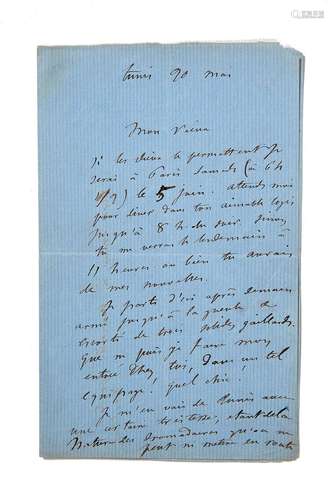 Tunis 20 mai
Mon vieux
Si les dieux le permettent je
serai à Paris samedi (à 6 h
1/2) le 5 juin. attends moi
pour dîner dans ton aimable logis
jusqu'à 8 h du soir. sinon
tu me verras le lendemain à
11 heures ou bien tu auras
de mes nouvelles.
Je pars d'ici après demain
armé jusqu'à la gueule &
escorté de trois solides gaillards.
que ne puis-je faire mon
entrée chez toi, dans un tel
équipage. quel chic!
Je m'en vais de Tunis avec
une certaine tristesse, étant de la
nature des dromadaires qu'on ne
peut ni mettre en route